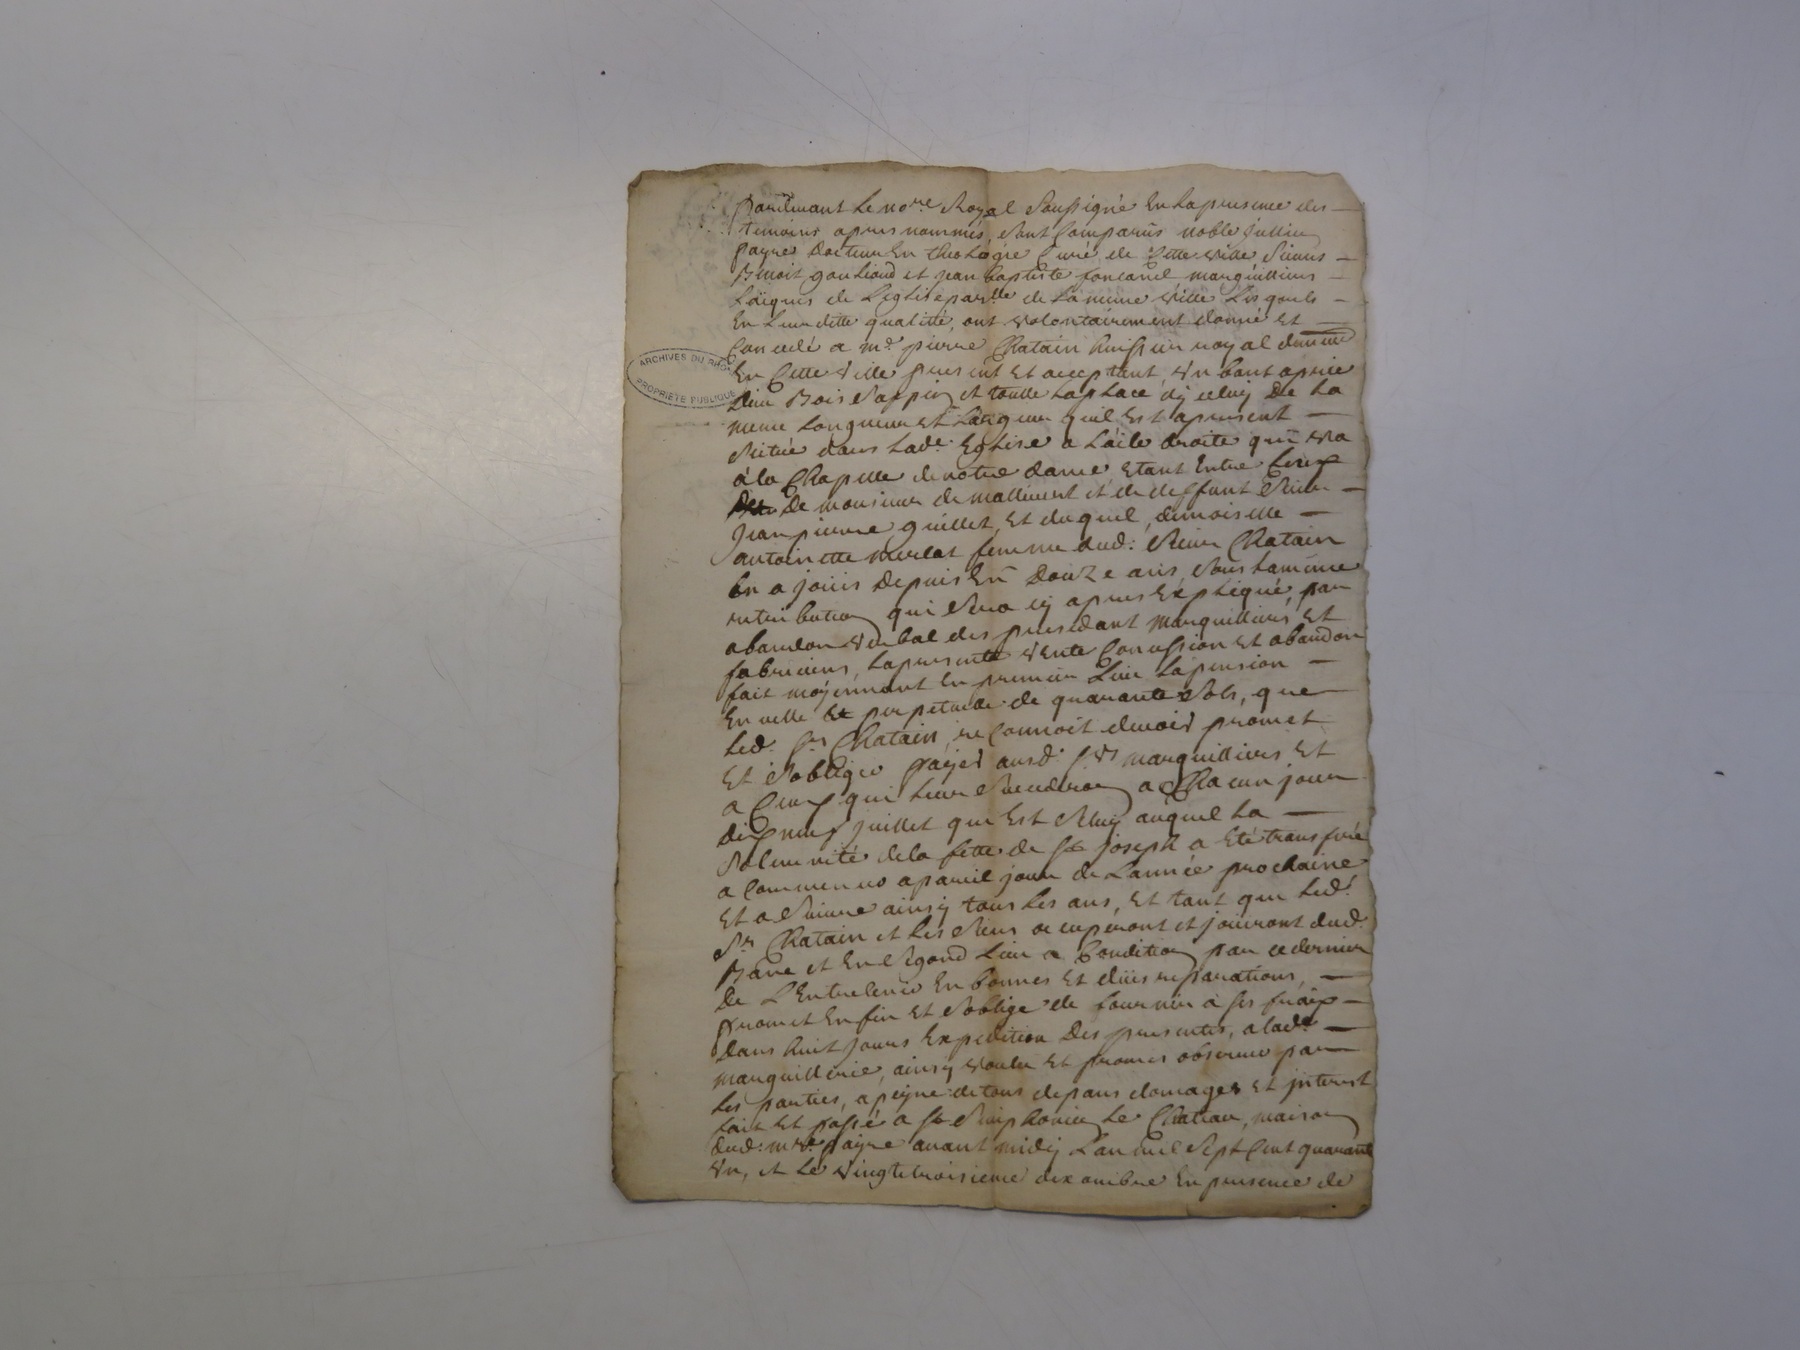 Pardevant Le no.re Royal Soussigné En La presence des
temoins apres nommés, Sont Comparûs noble jullien
payre Docteur En theologie Curé de Cette ville Sieurs
Benoit et jean baptiste fontanel marguilliers
Laïques de L'eglise par.lle de La même ville Lesquels
En Leur ditte qualitté, ont volontairement donné et
Concedé a m.e pierre Chatain huissier royal
En Cette ville present et acceptant, un banc
Bois Sappin et toutte La place d'iceluy De La
meme Longueur et Largeur quil Est apresent
Scitué dans Lad.e Eglise a L'aile droite qui va
à la Chapelle de notre dame Etant Entre Ceux
De monsieur de mallivert et de deffunt Sieur
Jean pierre guillet, Et duquel, demoiselle
antoinette merlat femme dud: Sieur Chatain
En a joüis Depuis En̄ Douze ans Sous La même
retribution qui Sera cy apres Expliqué, par
abandon verbal des precedant marguilliers Et
fabriciens, La presente vente Concession Et abandon
fait moyennant En premier Lieu La pension
En uelle Et perpetuelle de quarante Sols, que
Led. S.r Chatain, reConnoit devoir promet
Et S'obliger payer ausd. S.rs marguilliers Et
a Ceux qui Leur Sucederon a Chacun jour
dix neuf juillet qui Est Celuy auquel La
Solemnité de la fette de S.t joseph a Eté transferé
a Commencer a pareil jour de L'année prochaine
Et a Suivre ainsy tous Les ans, Et tant que Led.
S.r Chatain et Les Siens occuperont et joüiront dud.
Banc et En Segond Lieu a Condition par ce dernier
De L'Entretenir En bonnes Et dües reparations,
promet Enfin Et S'oblige de fournir à Ses fraix
Dans huit jours Expedition Des presentes, a lad.e
marguillerie, ainsy voulu Et promis observer par
Les parties, a peyne de tous depans domages Et jnterest
fait Et passé a S.t Simphorien Le Chateau, maison
dud. m.re payre avant midy L'an mil Sept Cent quarante
Un, et Le vingt troisieme dexembre En presence de
ARCHIVES DU RHÔNE
PROPRIÉTÉ PUBLIQUE